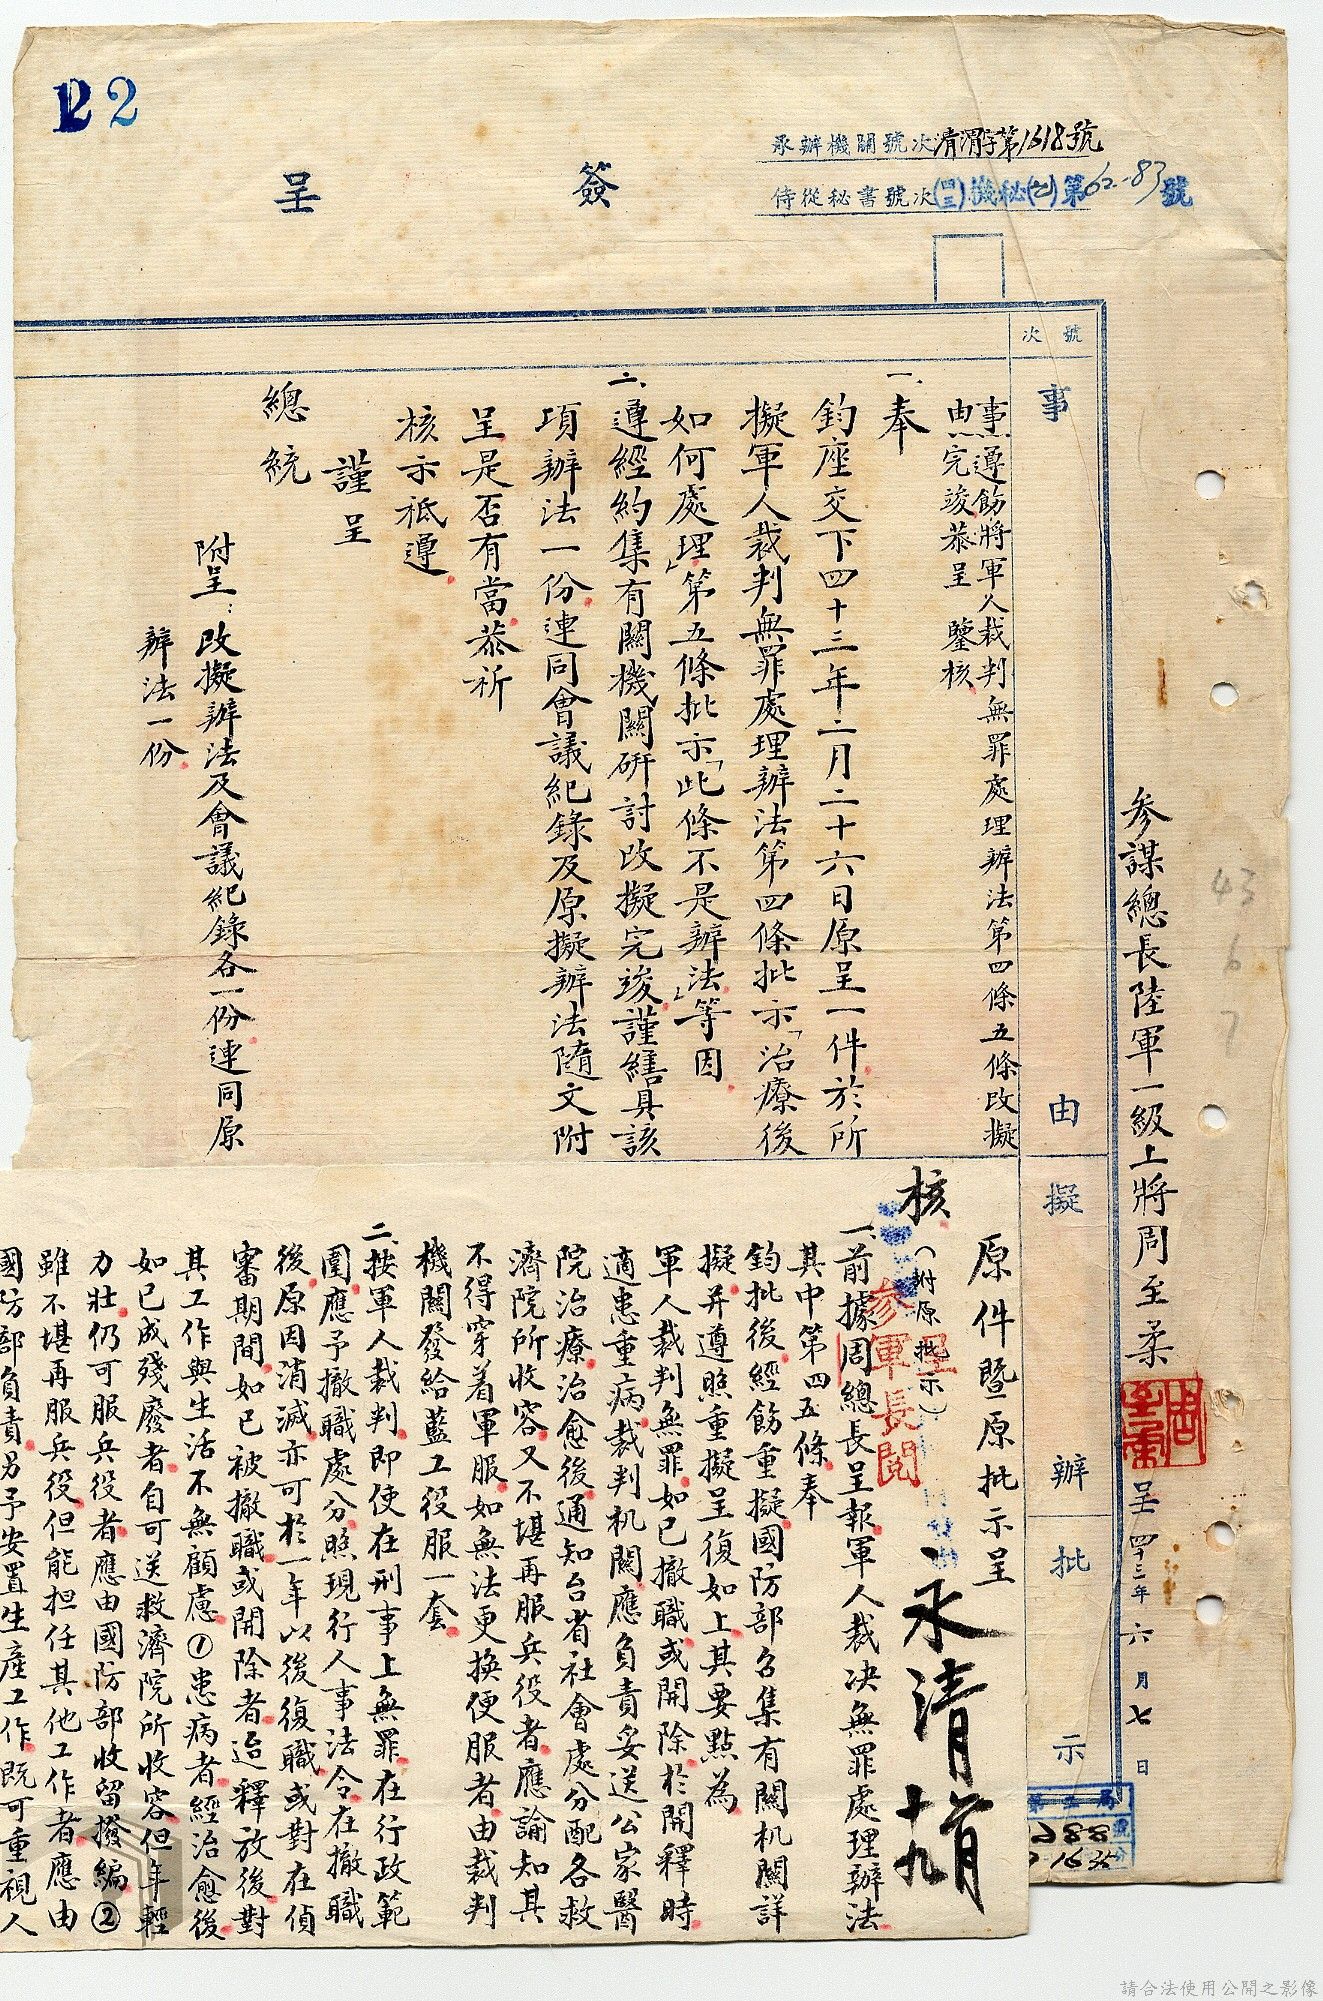 22
承辦機關號次清渭字第1618號
侍從秘書號次㈣機秘㈡第62-83號
簽呈
號次
事由
擬辦
批示
參謀總長陸軍一級上將周至柔
呈四十三年六月七日
43 6 7
事由:遵飭將軍人裁判無罪處理辦法第四條五條改擬
完竣恭呈 鑒核
一、奉
鈞座交下四十三年二月二十六日原呈一件於所
擬軍人裁判無罪處理辦法第四條批示「治療後
如何處理」第五條批示「此條不是辦法」等因
二、遵經約集有關機關研討改擬完竣謹繕具該
項辦法一份連同會議紀錄及原擬辦法隨文附
呈是否有當恭祈
核示祗遵
謹呈
總統
附呈:改擬辦法及會議紀錄各一份連同原
辦法一份
原件暨原批示呈
核(附原批示)
參軍長閱
永清
十九
一、前據周總長呈報軍人裁決無罪處理辦法
其中第四五條奉
鈞批後經飭重擬國防部召集有關机關詳
擬并遵照重擬呈復如上其要點為
軍人裁判無罪如已撤職或開除於開釋時
適患重病裁判机關應負責妥送公家醫
院治療治愈後通知台省社會處分配各救
濟院所收容又不堪再服兵役者應諭知其
不得穿着軍服如無法更換便服者由裁判
機關發給藍工役服一套
二、按軍人裁判即使在刑事上無罪在行政範
圍應予撤職處分照現行人事法令在撤職
後原因消滅亦可於一年以後復職或對在偵
審期間如已被撤職或開除者迨釋放後對
其工作與生活不無顧慮①患病者經治愈後
如已成殘廢者自可送救濟院所收容但年輕
力壯仍可服兵役者應由國防部收留撥編②
雖不堪再服兵役但能担任其他工作者應由
國防部負責另予安置生產工作既可重視人
請合法使用公開之影像